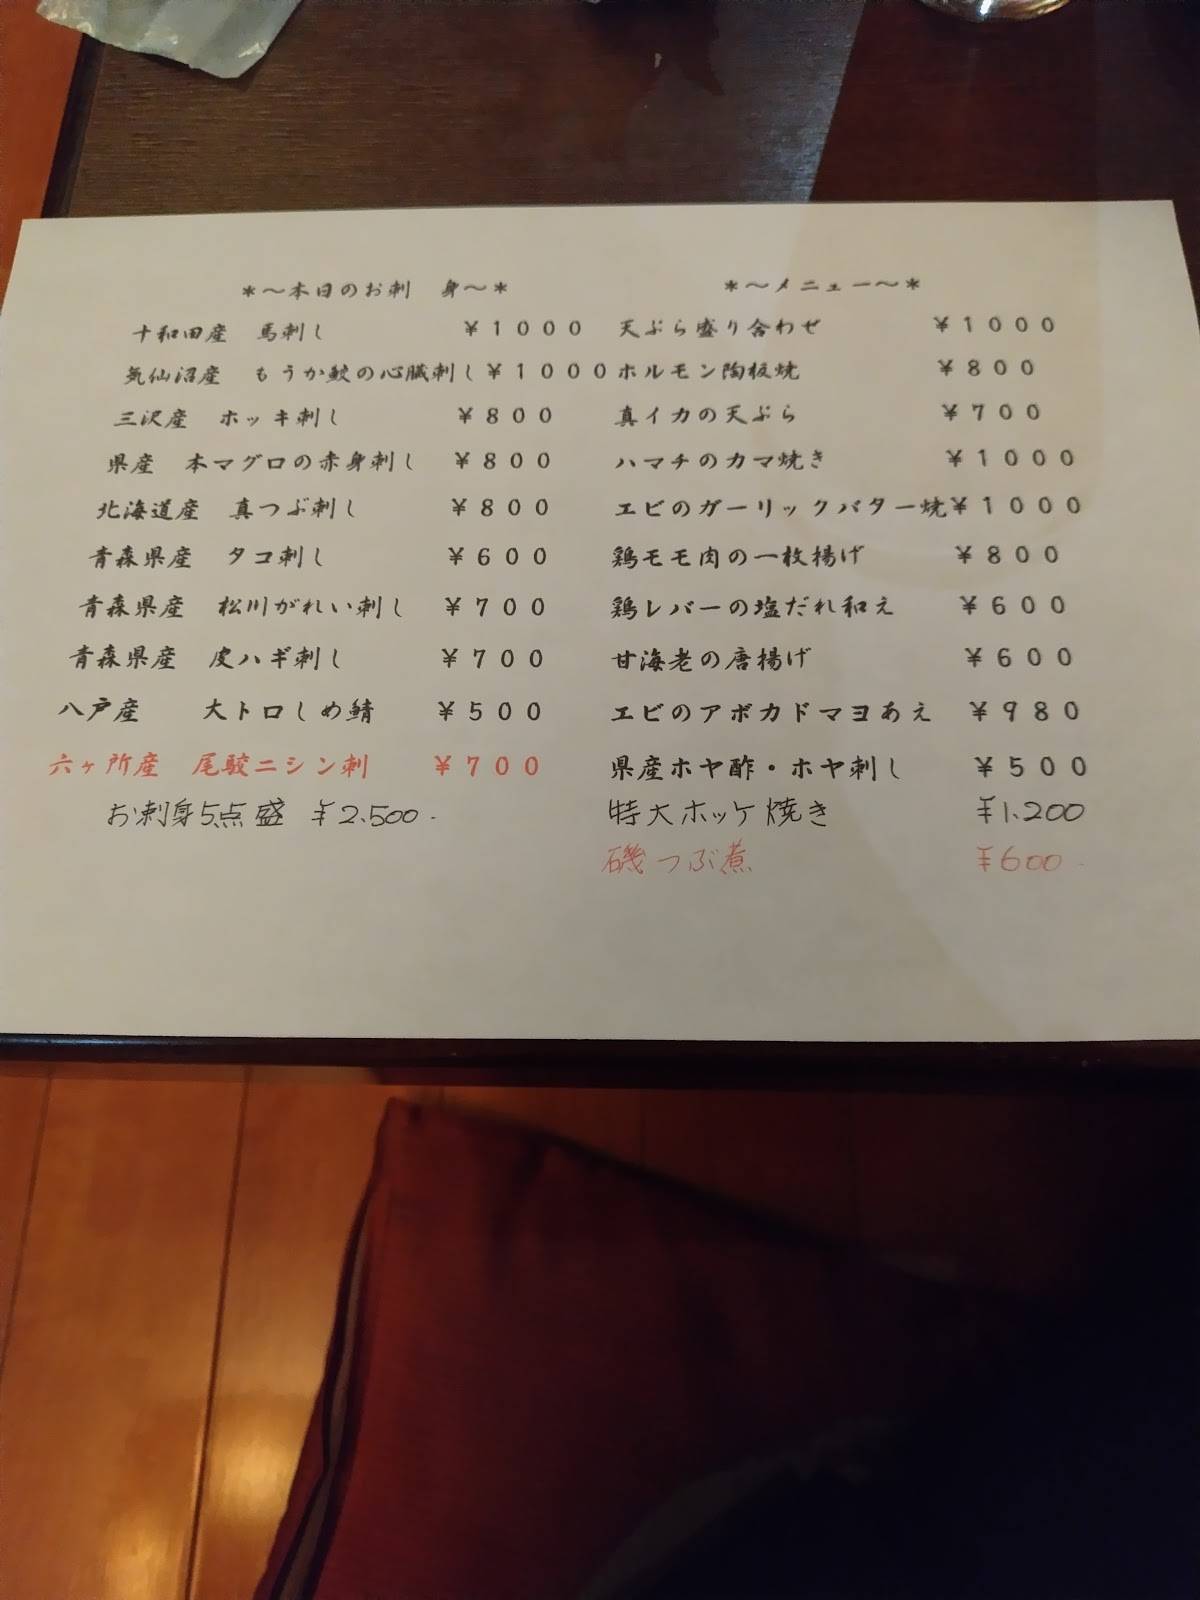 ＊～本日のお刺　身～＊
十和田産　馬刺し　￥１０００
気仙沼産　もうか鮫の心臓刺し￥１０００
三沢産　ホッキ刺し　￥８００
県産　本マグロの赤身刺し　￥８００
北海道産　真つぶ刺し　￥８００
青森県産　タコ刺し　￥６００
青森県産　松川がれい刺し　￥７００
青森県産　皮ハギ刺し　￥７００
八戸産　大トロしめ鯖　￥５００
六ヶ所産　尾駮ニシン刺　￥７００
お刺身5点盛　￥2.500.
＊～メニュー～＊
天ぷら盛り合わせ　￥１０００
ホルモン陶板焼　￥８００
真イカの天ぷら　￥７００
ハマチのカマ焼き　￥１０００
エビのガーリックバター焼￥１０００
鶏モモ肉の一枚揚げ　￥８００
鶏レバーの塩だれ和え　￥６００
甘海老の唐揚げ　￥６００
エビのアボカドマヨあえ　￥９８０
県産ホヤ酢・ホヤ刺し　￥５００
特大ホッケ焼き　￥1.200
磯つぶ煮　￥600.